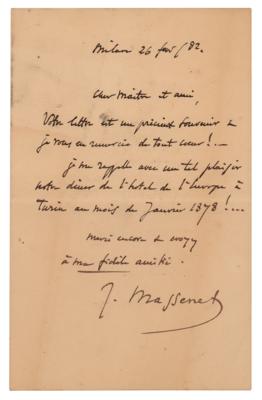 Milan 26 fév/82.
Cher Maître et ami,
Votre lettre est un précieux souvenir &
je vous en remercie de tout cœur!...
je me rappelle avec un tel plaisir
notre dîner de l'hotel de l'Europe à
Turin au mois de Janvier 1878!...
merci encore & croyez
à ma fidèle amitié.
J. Massenet